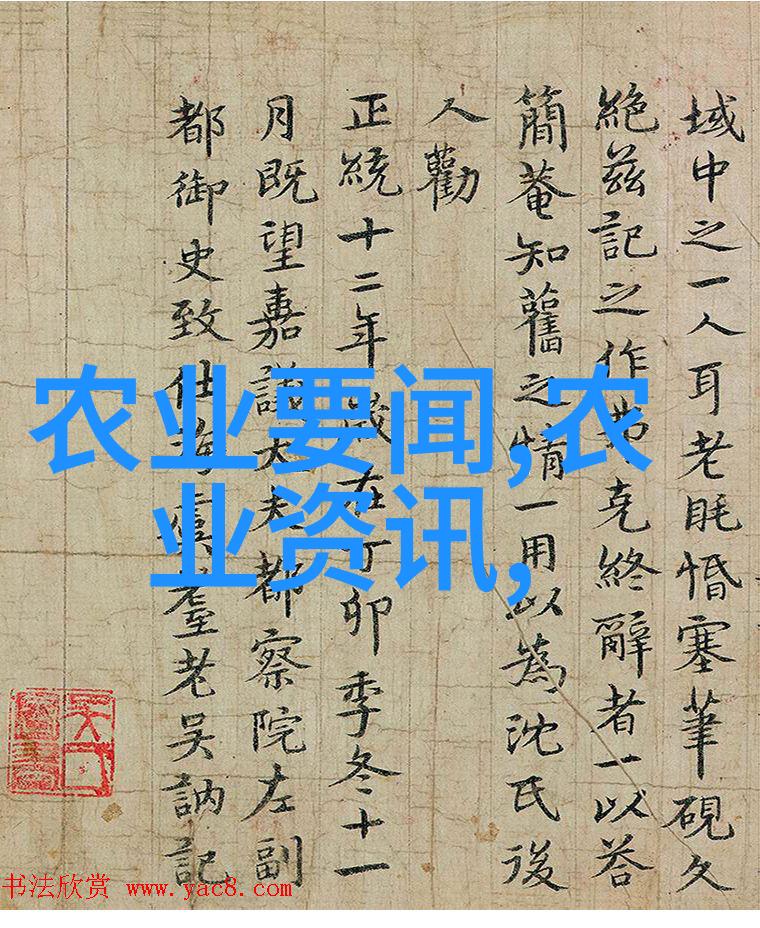 域中之一人耳老眊惛塞筆硯久
絶兹記之作弗克終辭者一以荅
簡菴知舊之情一用以為沈氏後
人勸
正統十二年歲在丁卯季冬十一
月既望嘉議大夫都察院左副
都御史致仕海虞耋老吳訥記
农业要闻,农
业资讯,
书法欣赏 www.yac8.com